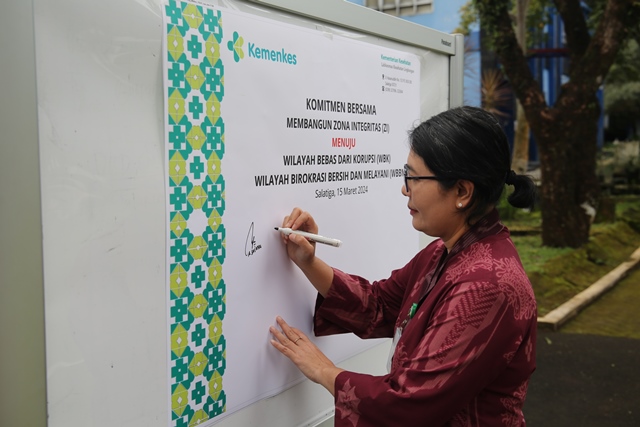 Kemenkes
Kementerian Kesehatan
KOMITMEN BERSAMA
MEMBANGUN ZONA INTEGRITAS (ZI)
MENUJU
WILAYAH BEBAS DARI KORUPSI (WBK)
WILAYAH BIROKRASI BERSIH DAN MELAYANI (WBBM)
Salatiga, 15 Maret 2024